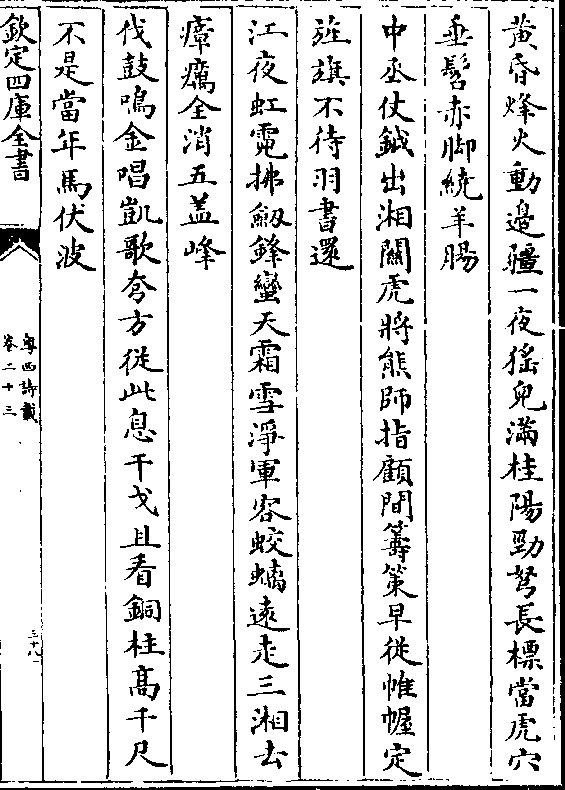 黄昏烽火動邊疆一夜猺兒滿桂陽勁弩長標當虎穴
垂髫赤脚繞羊腸
中丞仗鉞出湘關虎將熊師指顧間籌策早從帷幄定
旌旗不待羽書還
江夜虹霓拂劔鋒蠻天霜雪淨軍容蛟螭遠走三湘去
瘴癘全消五盖峰
伐鼓鳴金唱凱歌夸方從此息干戈且看銅柱髙千尺
不是當年馬伏波
欽定四庫全書
粤西詩載
卷二十三
三十八